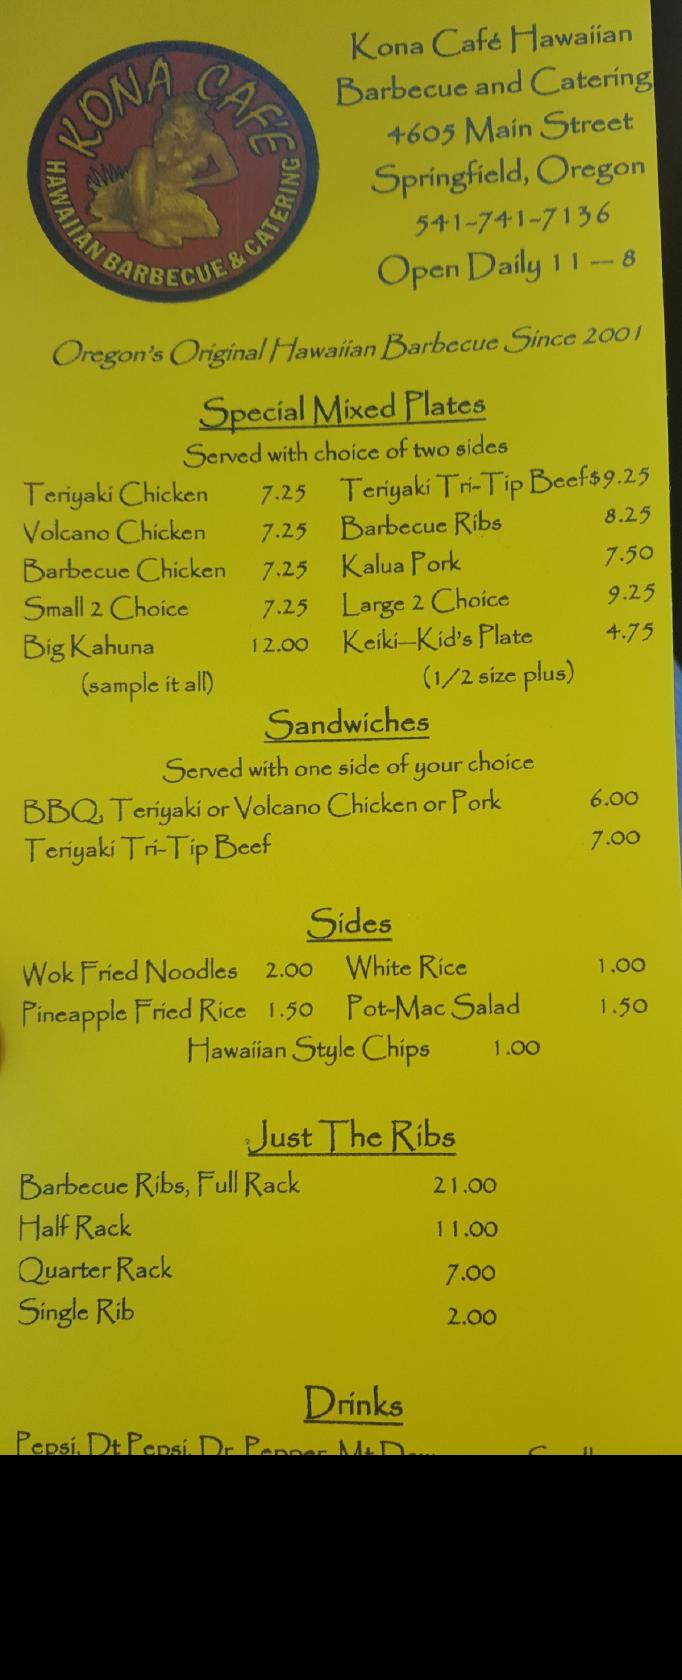 KONA CAFÉ
HAWAIIAN BARBECUE & CATERING
Kona Café Hawaiian
Barbecue and Catering
4605 Main Street
Springfield, Oregon
541-741-7136
Open Daily 11 — 8
Oregon's Original Hawaiian Barbecue Since 2001
Special Mixed Plates
Served with choice of two sides
Teriyaki Chicken 7.25 Teriyaki Tri-Tip Beef $9.25
Volcano Chicken 7.25 Barbecue Ribs 8.25
Barbecue Chicken 7.25 Kalua Pork 7.50
Small 2 Choice 7.25 Large 2 Choice 9.25
Big Kahuna 12.00 Keiki—Kid's Plate 4.75
(sample it all) (1/2 size plus)
Sandwiches
Served with one side of your choice
BBQ, Teriyaki or Volcano Chicken or Pork 6.00
Teriyaki Tri-Tip Beef 7.00
Sides
Wok Fried Noodles 2.00 White Rice 1.00
Pineapple Fried Rice 1.50 Pot-Mac Salad 1.50
Hawaiian Style Chips 1.00
Just The Ribs
Barbecue Ribs, Full Rack 21.00
Half Rack 11.00
Quarter Rack 7.00
Single Rib 2.00
Drinks
Pepsi, Dt Pepsi, Dr. Pepper, Mt